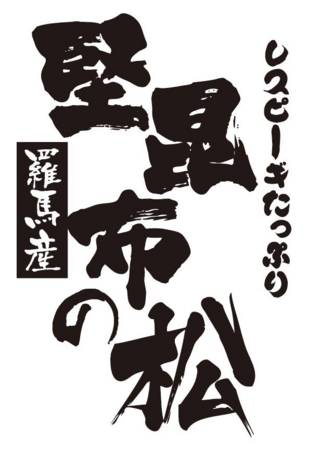 レスピーギたっぷり
堅昆布の松
羅馬産